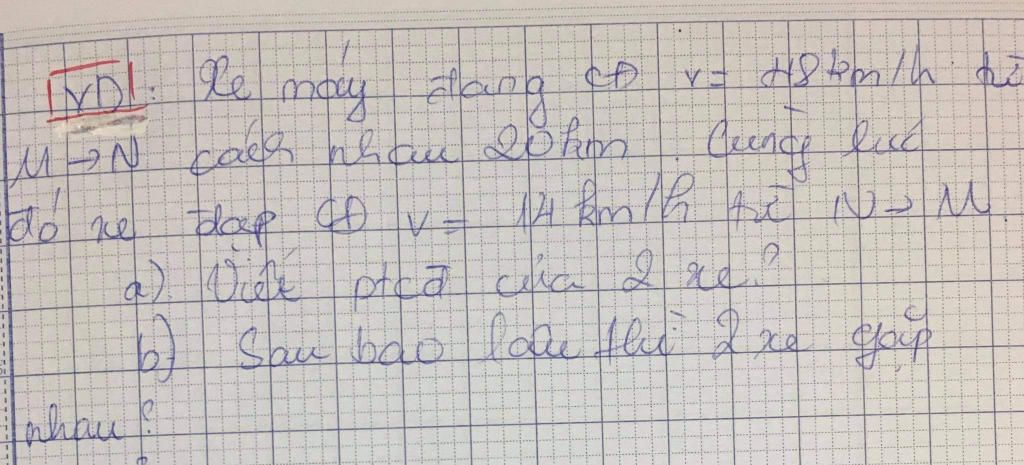 VD: Xe máy đang CĐ v = 48 km/h từ
M → N cách nhau 20 km. Cùng lúc
đó xe đạp CĐ v = 14 km/h từ N → M.
a). Viết ptcđ của 2 xe?
b) Sau bao lâu thì 2 xe gặp
nhau?